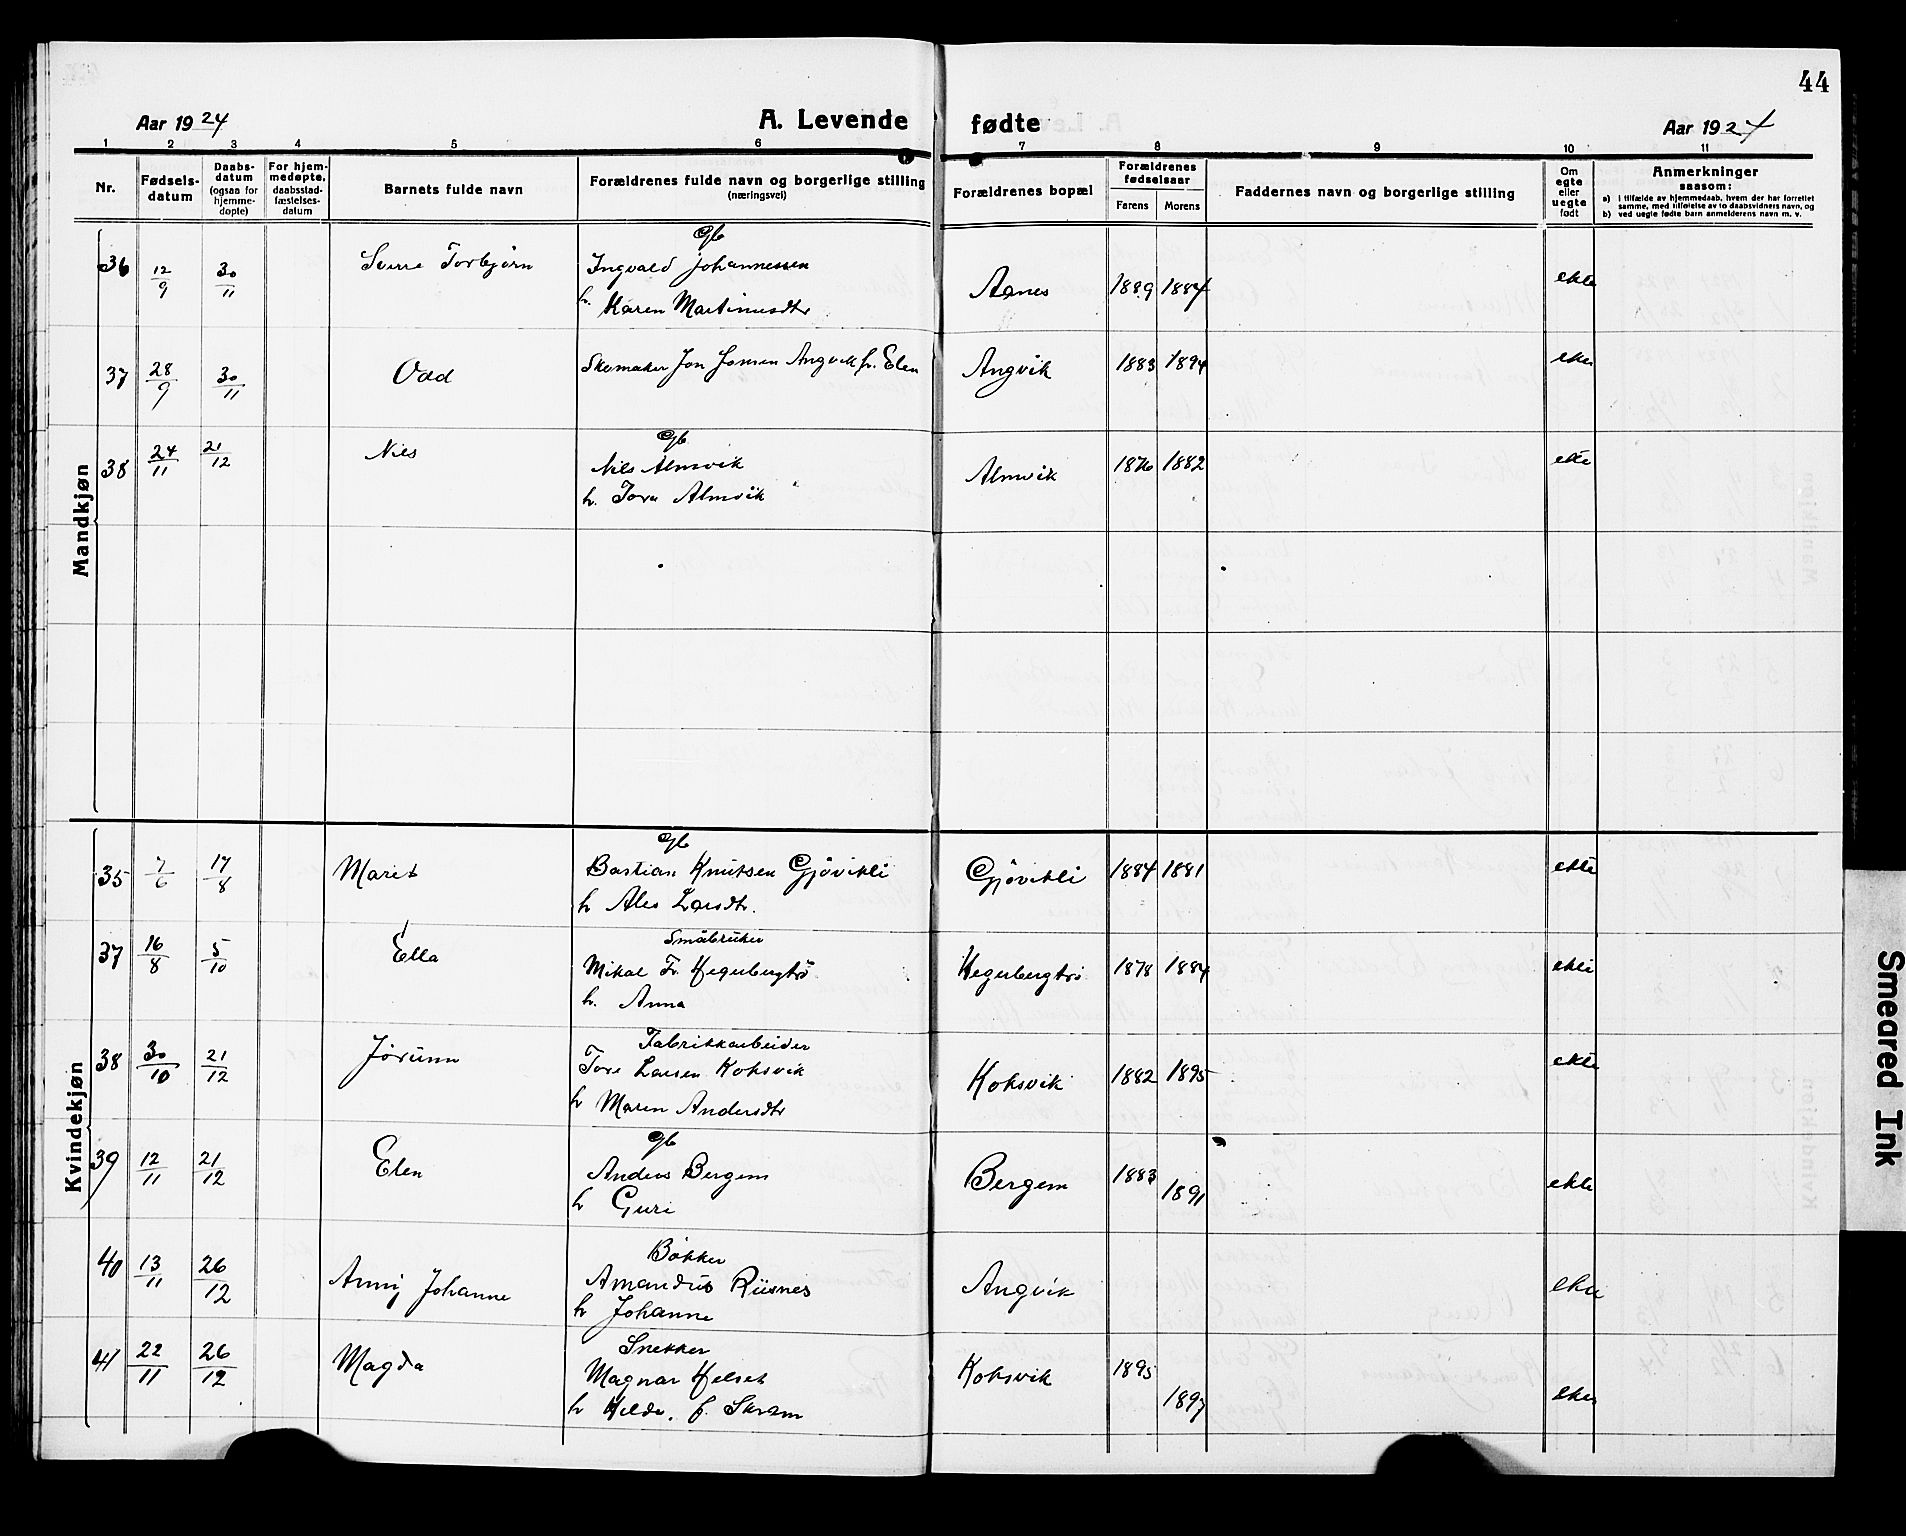 44
Aar 1924
A. Levende fødte
Aar 1924
1 2 3 4 5 6 7 8 9 10 11
Nr.
Fødsels-
datum
Daabs-
datum
(ogsaa for
hjemme-
døpte)
For hjem-
medøpte,
daabsstad-
fæstelses-
datum
Barnets fulde navn
Forældrenes fulde navn og borgerlige stilling
(næringsvei)
Forældrenes bopæl
Forældrenes
fødselsaar
Farens Morens
Faddernes navn og borgerlige stilling
Om
egte
eller
uegte
født
Anmerkninger
saasom:
a) i tilfælde av hjemmedaab, hvem der har forrettet
samme, med tilføielse av to daabsvidners navn, og
b) ved uegte fødte barn anmelderens navn m. v.
Mandkjøn
36 12/9 30/11 Sverre Torbjørn
Gb
Ingvald Johannessen
h. Karen Martinusdtr
Aanes 1889 1884 ekte
37 28/9 30/11 Odd
Skomaker Jon Jonsen Angvik h. Elen
Angvik 1883 1894 ekte
38 24/11 21/12 Nils
Gb
Nils Almvik
h. Tora Almvik
Almvik 1876 1882 ekte
Kvindekjøn
35 7/6 17/8 Marit
Gb
Bastian Knutsen Gjøvikli
h Ales Larsdtr.
Gjøvikli 1884 1881 ekte
37 16/8 5/10 Ella
Småbruker
Mikal Fr. Hegerbergtrø
h. Anna
Hegerbergtrø 1878 1884 ekte
38 30/10 21/12 Jørunn
Fabrikkarbeider
Tore Larsen Koksvik
h Maren Andersdtr
Koksvik 1882 1895 ekte
39 12/11 21/12 Elen
Gb
Anders Bergem
h Guri
Bergem 1883 1891 ekte
40 13/11 26/12 Anny Johanne
Bøkker
Amandus Riisnes
h Johanne
Angvik ekte
41 22/11 26/12 Magda
Snekker
Magnar Helset
h Hilda, f. Skram
Koksvik 1895 1897 ekte
Smeared Ink